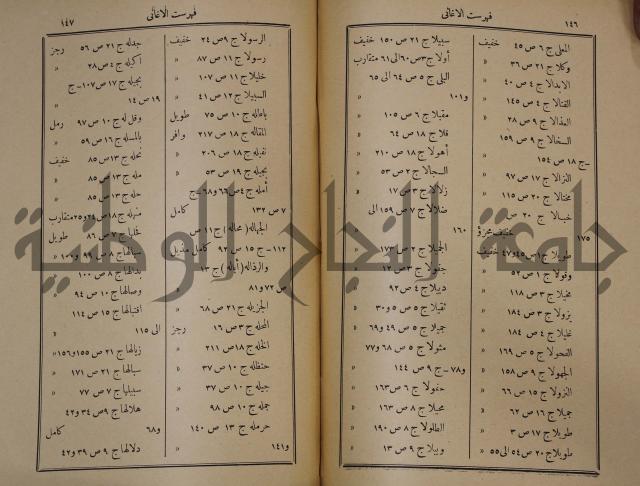 فهرست الاغانى
١٤٦
المعلى ج ٦ ص ٤٥ خفيف
وكلا ج ٢١ ص ٣٦ »
الابدالا ج ٤ ص ٤٠ »
القتالا ج ٤ ص ١٤٥ »
العذالا ج ٩ ص ٢٨ »
السخالا ج ٩ ص ١٥٩
-ج ١٨ ص ١٥٤ »
النزالا ج ٧ ص ٩٧ »
محتالا ج ٢٠ ص ١١٥ »
خبالا ج ٢٠ ص
١٧٥ خفيف مجزوء
طويلا ج ١ ص ٤٥ و ٤٧ خفيف
وقولا ج ١ ص ٥٢ »
مخيلا ج ٣ ص ١١٨ »
يزولا ج ٣ ص ١٨٤ »
غليلا ج ٤ ص ١٨٤ »
الفحولا ج ٥ ص ١٦٩ »
الجهولا ج ٩ ص ١٥٨ »
النزولا ج ١٥ ص ٦٦ »
جميلا ج ١٦ ص ٦٢ »
طويلا ج ١٧ ص ٣ »
طويلا ج ٢٠ ص ٥٤ الى ٥٥ »
سبيلا ج ٢١ ص ١٥٠ خفيف
أولا ج ٣ ص ٦٠ الى ٦١ متقارب
البلى ج ٥ ص ٦٤ الى ٦٥
و ١٠١ »
مقيلا ج ٦ ص ١٠٥ »
فلا ج ١٨ ص ٦٤ »
أهولا ج ١٨ ص ٢١٠ »
السجالا ج ٢ ص ٥٣ »
زلالا ج ٣ ص ١٧ »
ضلالا ج ٧ ص ١٥٩ الى
١٦٠ »
الجميلا ج ٢ ص ١٧٣ »
جتولا ج ٣ ص ١٢ »
دبيلا ج ٤ ص ٩٢ »
ثقيلا ج ٥ ص ٥ و ٣٠ »
جميلا ج ٥ ص ٤٩ و ٦٩ »
مثولا ج ٥ ص ٦٨ و ٧٧
و ٧٨ - ج ٩ ص ١٤٤ »
حفولا ج ٦ ص ١٦٣ »
محيلا ج ٨ ص ١٦٣ »
الطلولا ج ٨ ص ١٩٠ »
وبيلا ج ٩ ص ١٣ »
فهرست الاغانى
١٤٧
الرسولا ج ٩ ص ٢٤ خفيف
رسولا ج ١١ ص ٨٧ »
خليلا ج ١١ ص ١٠٧ »
السبيلا ج ١٢ ص ٤١ »
باعاله ج ١٠ ص ٧٥ طويل
المقاله ج ١٨ ص ٢١٧ وافر
نقبله ج ١٨ ص ٢٠٦ »
بجيله ج ١٩ ص ٥٣ »
أمله ج ٤ ص ٦٦ و ٦٨ - ج
٧ ص ١٣٢ كامل
الجهاله ( محاله ) ج ١١ ص
١١٢ - ج ١٥ ص ٩٢ كامل مذيل
والرذاله ( أباله ) ج ١٣
ص ٧٢ و ٨١ »
الجزيله ج ٢١ ص ٦٨ »
المحله ج ٣ ص ١٦ رجز
الخله ج ١٨ ص ٢١١ »
حنظله ج ١٠ ص ٣٧ »
جيله ج ١٠ ص ٣٧ »
جمله ج ١٠ ص ٩٨ »
حرمله ج ١٣ ص ١٤٠
و ١٤١ »
جدله ج ٢١ ص ٥٦ رجز
أكيله ج ٤ ص ٢٨ »
بجيله ج ١٧ ص ١٠٧ - ج
١٩ ص ١٤ »
وقل له ج ١٠ ص ٩٧ رمل
بالمسله ج ١٦ ص ٥٩ »
نحله ج ١٣ ص ٨٥ خفيف
مله ج ١٣ ص ٨٥ »
حله ج ١٣ ص ٨٥ »
منزله ج ١٨ ص ٢٤ و ٢٥ متقارب
خليلها ج ٧ ص ٨٦ طويل
سبالها ج ٨ ص ٩٩ و ١٠٠ »
بدالها ج ٨ ص ١٠٠ »
وصالها ج ١٠ ص ٩٤ »
افتيالها ج ١٥ ص ١١٤
الى ١١٥ »
زيالها ج ٢١ ص ١٥٥ و ١٥٦ »
سبالها ج ٢١ ص ١٧١ »
سبيلها ج ٧ ص ٧٧ »
هلالها ج ٩ ص ٣٤ و ٤٢
و ٦٨ كامل
دلالها ج ٩ ص ٣٩ و ٤٢ »
جامعة النجاح الوطنية